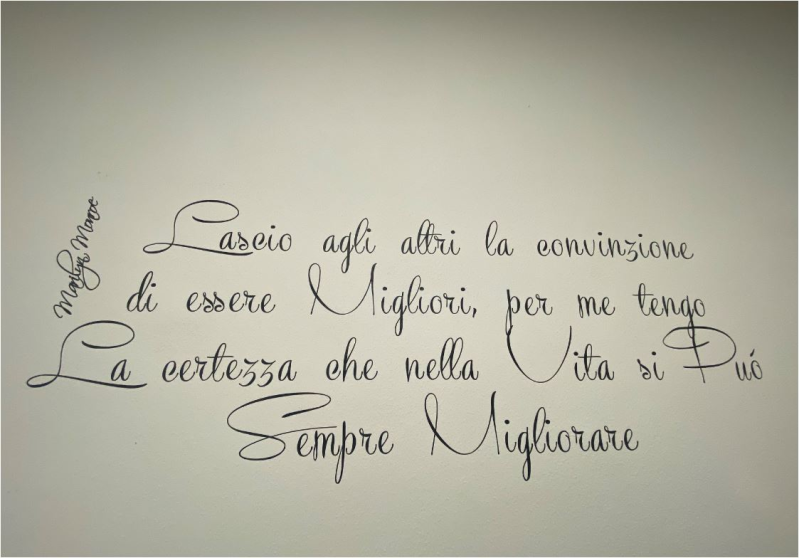 Lascio agli altri la convinzione
di essere Migliori, per me tengo
La certezza che nella Vita si Puó
Sempre Migliorare
Marilyn Monroe